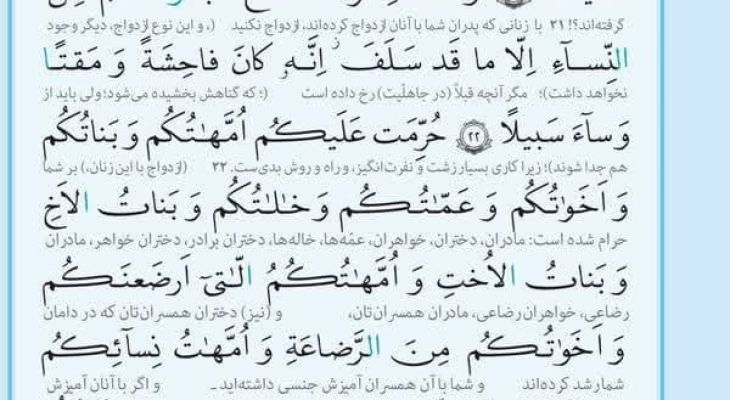 گرفته‌اند؟! ۲۱ با زنانی که پدران شما با آنان ازدواج کرده‌اند، ازدواج نکنید (، و این نوع ازدواج، دیگر وجود
النِّسآءِ اِلّا ما قَد سَلَفَ ۚ اِنَّهٗ كانَ فاحِشَةً وَ مَقتًا
نخواهد داشت)؛ مگر آنچه قبلاً (در جاهلیّت) رخ داده است (؛ که گناهش بخشیده می‌شود؛ ولی باید از
وَ سآءَ سَبيلًا ﴿۲۲﴾ حُرِّمَت عَلَيكُم اُمَّهٰتُكُم وَ بَناتُكُم
هم جدا شوند)؛ زیرا کاری بسیار زشت و نفرت‌انگیز، و راه و روش بدی‌ست. ۲۲ (ازدواج با این زنان،) بر شما
وَ اَخَوٰتُكُم وَ عَمّٰتُكُم وَ خٰلٰتُكُم وَ بَناتُ الاَخِ
حرام شده است: مادران، دختران، خواهران، عمّه‌ها، خاله‌ها، دختران برادر، دختران خواهر، مادران
وَ بَناتُ الاُختِ وَ اُمَّهٰتُكُمُ الّٰتىٓ اَرضَعنَكُم
رضاعی، خواهران رضاعی، مادران همسران‌تان، و (نیز) دختران همسران‌تان که در دامان
وَ اَخَوٰتُكُم مِنَ الرَّضاعَةِ وَ اُمَّهٰتُ نِسآئِكُم
شما رشد کرده‌اند و شما با آن همسران آمیزش جنسی داشته‌اید ـ و اگر با آنان آمیزش